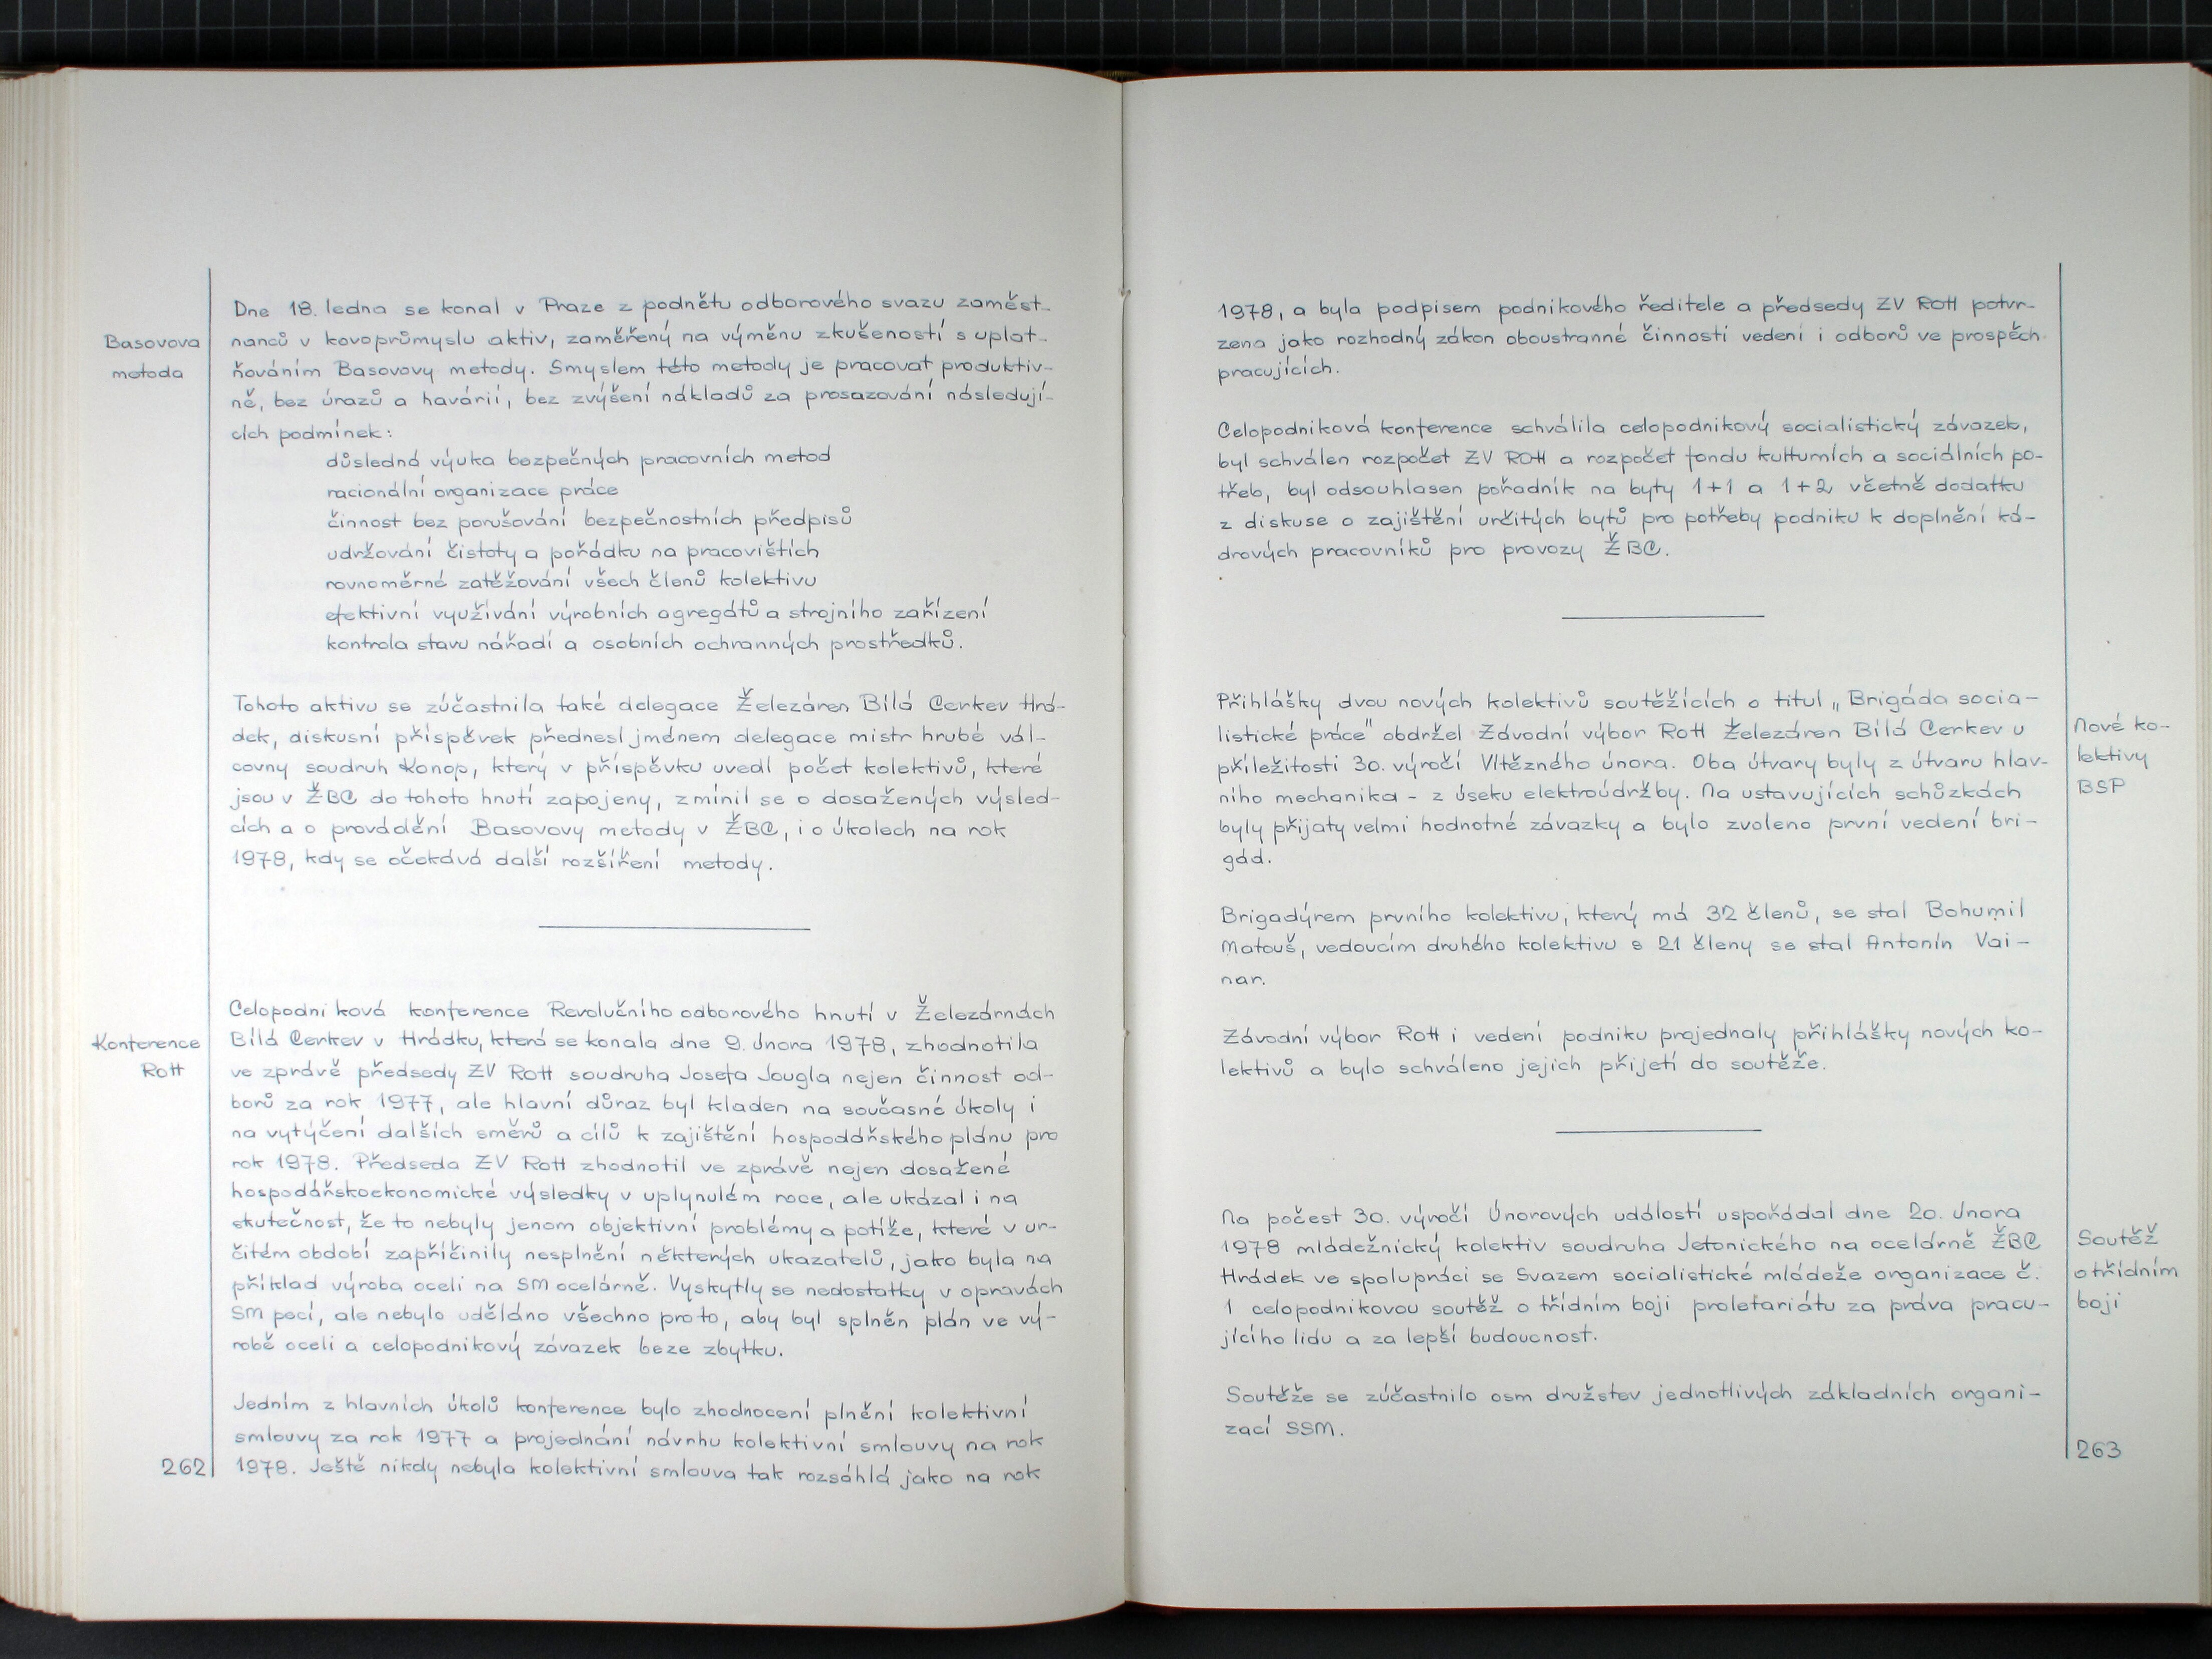 Basovova
metoda
Dne 18. ledna se konal v Praze z podnětu odborového svazu zaměst-
nanců v kovoprůmyslu aktiv, zaměřený na výměnu zkušeností s uplat-
ňováním Basovovy metody. Smyslem této metody je pracovat produktiv-
ně, bez úrazů a havárií, bez zvýšení nákladů za prosazování následují-
cích podmínek:
důsledná výuka bezpečných pracovních metod
racionální organizace práce
činnost bez porušování bezpečnostních předpisů
udržování čistoty a pořádku na pracovištích
rovnoměrné zatěžování všech členů kolektivu
efektivní využívání výrobních agregátů a strojního zařízení
kontrola stavu nářadí a osobních ochranných prostředků.
Tohoto aktivu se zúčastnila také delegace Železáren Bílá Cerkev Hrá-
dek, diskusní příspěvek přednesl jménem delegace mistr hrubé vál-
covny soudruh Konop, který v příspěvku uvedl počet kolektivů, které
jsou v ŽBC do tohoto hnutí zapojeny, zmínil se o dosažených výsled-
cích a o provádění Basovovy metody v ŽBC, i o úkolech na rok
1978, kdy se očekává další rozšíření metody.
Konference
ROH
Celopodniková konference Revolučního odborového hnutí v Železárnách
Bílá Cerkev v Hrádku, která se konala dne 9. února 1978, zhodnotila
ve zprávě předsedy ZV ROH soudruha Josefa Jougla nejen činnost od-
borů za rok 1977, ale hlavní důraz byl kladen na současné úkoly i
na vytýčení dalších směrů a cílů k zajištění hospodářského plánu pro
rok 1978. Předseda ZV ROH zhodnotil ve zprávě nejen dosažené
hospodářskoekonomické výsledky v uplynulém roce, ale ukázal i na
skutečnost, že to nebyly jenom objektivní problémy a potíže, které v ur-
čitém období zapříčinily nesplnění některých ukazatelů, jako byla na
příklad výroba oceli na SM ocelárně. Vyskytly se nedostatky v opravách
SM pecí, ale nebylo uděláno všechno proto, aby byl splněn plán ve vý-
robě oceli a celopodnikový závazek beze zbytku.
Jedním z hlavních úkolů konference bylo zhodnocení plnění kolektivní
smlouvy za rok 1977 a projednání návrhu kolektivní smlouvy na rok
1978. Ještě nikdy nebyla kolektivní smlouva tak rozsáhlá jako na rok
262
1978, a byla podpisem podnikového ředitele a předsedy ZV ROH potvr-
zena jako rozhodný zákon oboustranné činnosti vedení i odborů ve prospěch
pracujících.
Celopodniková konference schválila celopodnikový socialistický závazek,
byl schválen rozpočet ZV ROH a rozpočet fondu kulturních a sociálních po-
třeb, byl odsouhlasen pořadník na byty 1+1 a 1+2 včetně dodatku
z diskuse o zajištění určitých bytů pro potřeby podniku k doplnění ká-
drových pracovníků pro provozy ŽBC.
Přihlášky dvou nových kolektivů soutěžících o titul „Brigáda socia-
listické práce" obdržel Závodní výbor ROH Železáren Bílá Cerkev u
příležitosti 30. výročí Vítězného února. Oba útvary byly z útvaru hlav-
ního mechanika - z úseku elektroúdržby. Na ustavujících schůzkách
byly přijaty velmi hodnotné závazky a bylo zvoleno první vedení bri-
gád.
Nové ko-
lektivy
BSP
Brigadýrem prvního kolektivu, který má 32 členů, se stal Bohumil
Matouš, vedoucím druhého kolektivu s 21 členy se stal Antonín Vai-
nar.
Závodní výbor ROH i vedení podniku projednaly přihlášky nových ko-
lektivů a bylo schváleno jejich přijetí do soutěže.
Na počest 30. výročí Únorových událostí uspořádal dne 20. února
1978 mládežnický kolektiv soudruha Jetonického na ocelárně ŽBC
Hrádek ve spolupráci se Svazem socialistické mládeže organizace č.
1 celopodnikovou soutěž o třídním boji proletariátu za práva pracu-
jícího lidu a za lepší budoucnost.
Soutěž
o třídním
boji
Soutěže se zúčastnilo osm družstev jednotlivých základních organi-
zací SSM.
263